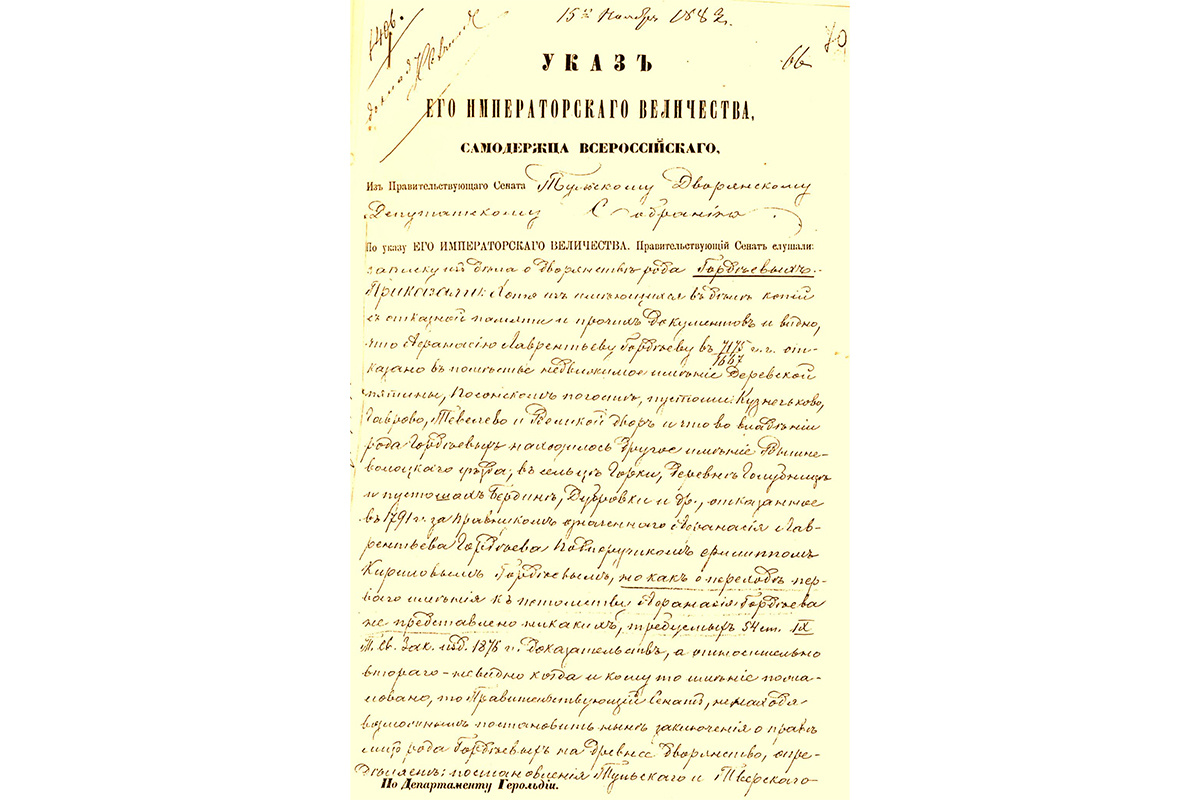 1496.
15го Ноября 1882.
70
66
УКАЗЪ
ЕГО ИМПЕРАТОРСКАГО ВЕЛИЧЕСТВА,
САМОДЕРЖЦА ВСЕРОССІЙСКАГО,
Изъ Правительствующаго Сената Тульскому Дворянскому
Депутатскому Собранію.
По указу ЕГО ИМПЕРАТОРСКАГО ВЕЛИЧЕСТВА. Правительствующій Сенатъ слушали:
записку изъ дѣла о дворянствѣ рода Горбовыхъ.
Приказали: Хотя изъ имѣющихся въ дѣлѣ копій
съ отказной памяти и прочихъ документовъ и видно,
что Афанасію Лаврентьеву въ 7175/1667 г.г. от-
казано въ помѣстье недвижимое имѣніе Деревской
пятины, погостѣ, пустоши: Кузнечьково,
Гаврово, Тевелево и Великой дворъ и что во владѣніи
рода находилось другое имѣніе Вышне-
волоцкаго уѣзда, въ сельцѣ Горки, деревнѣ
и пустошахъ Дубровки и др., отказанное
въ 1791 г. за правнукомъ означеннаго Афанасія Лав-
рентьева Подпоручикомъ Филиппомъ
Кириловымъ, но какъ о переходѣ пер-
ваго имѣнія къ потомству Афанасія
не представлено никакихъ, требуемыхъ 54 ст. IX
Т. Св. Зак. изд. 1876 г. доказательствъ, а относительно
втораго - не видно когда и кому то имѣніе пожа-
ловано, то Правительствующій Сенатъ, не находя
возможнымъ постановить нынѣ заключенія о правѣ
рода на древнее дворянство, опре-
дѣляетъ: постановленія Тульскаго и Тверскаго
По Департаменту Герольдіи.